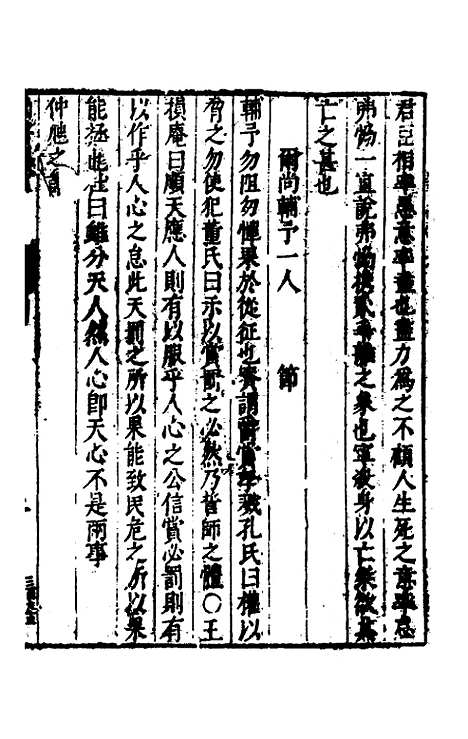 君臣相率愚意率盡也盡力為之不顧人生死之意率怠
弗協一宜說弗協携貳乖離之象也寧彼身以亡桀欲其
亡之甚也
爾尚輔予一人　節
輔予勿阻勿憚果於從征也賚謂爵賞孥戮孔氏曰權以
脅之勿使犯董氏曰示以賞罰之必然乃誓師之體〇王
損庵曰順天應人則有以服乎人心之公信賞必罰則有
以作乎人心之怠此天罰之所以果能致民危之所以果
能拯也註曰雖分天人然人心卽天心不是兩事
仲虺之